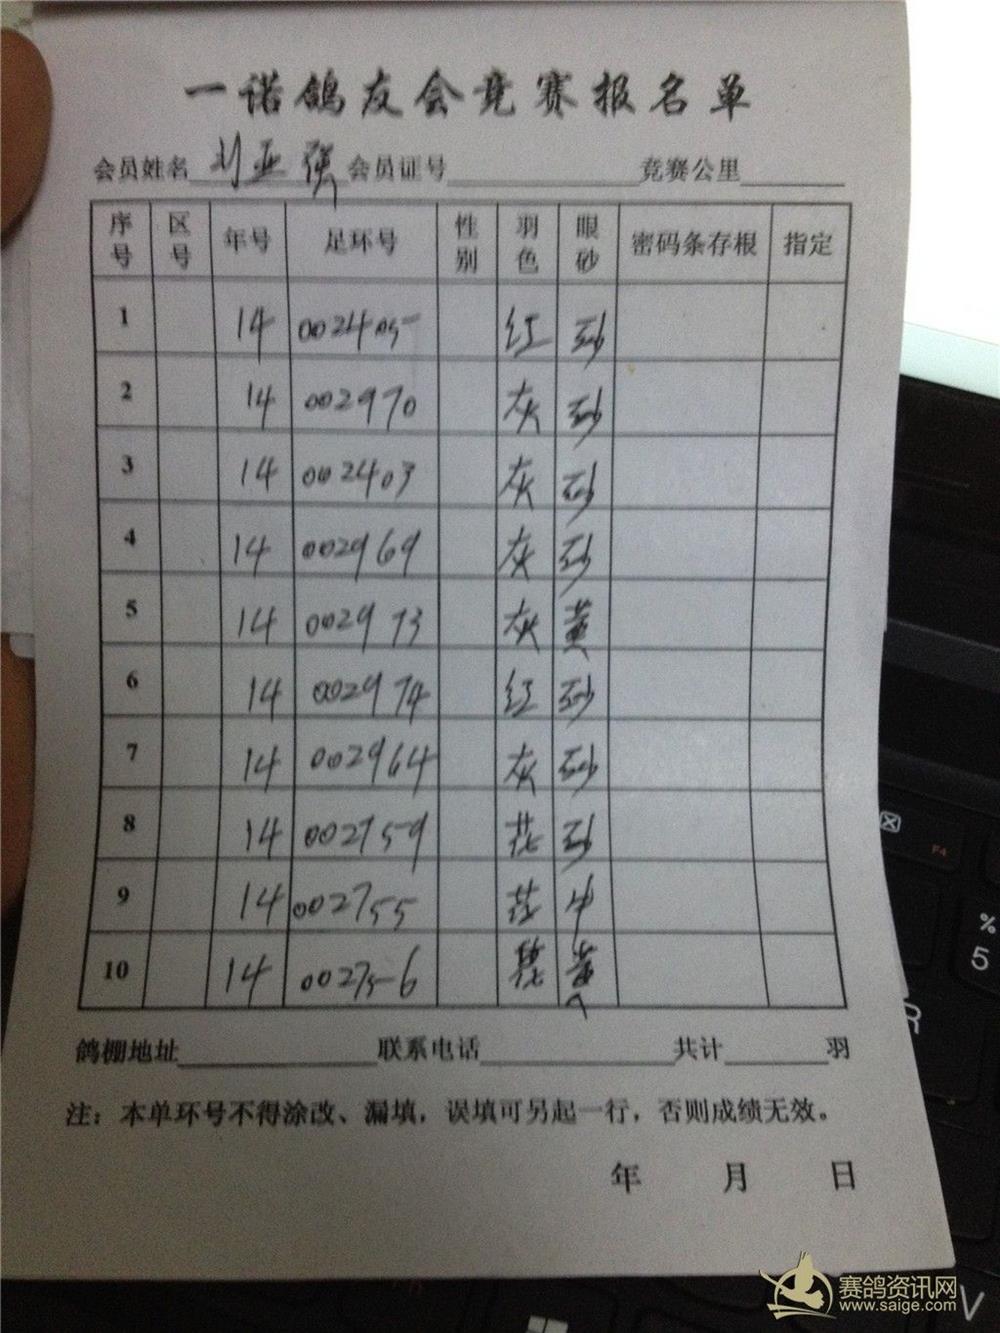 一诺鸽友会竞赛报名单
会员姓名 刘亚强 会员证号 竞赛公里
序号 区号 年号 足环号 性别 羽色 眼砂 密码条存根 指定
1 14 002405 红 砂
2 14 002970 灰 砂
3 14 002403 灰 砂
4 14 002969 灰 砂
5 14 002973 灰 黄
6 14 002974 红 砂
7 14 002964 灰 砂
8 14 002759 花 砂
9 14 002755 花 牛
10 14 002756 黄
鸽棚地址 联系电话 共计 羽
注：本单环号不得涂改、漏填，误填可另起一行，否则成绩无效。
年 月 日
F4
%
5
R
V
赛鸽资讯网
www.saige.com